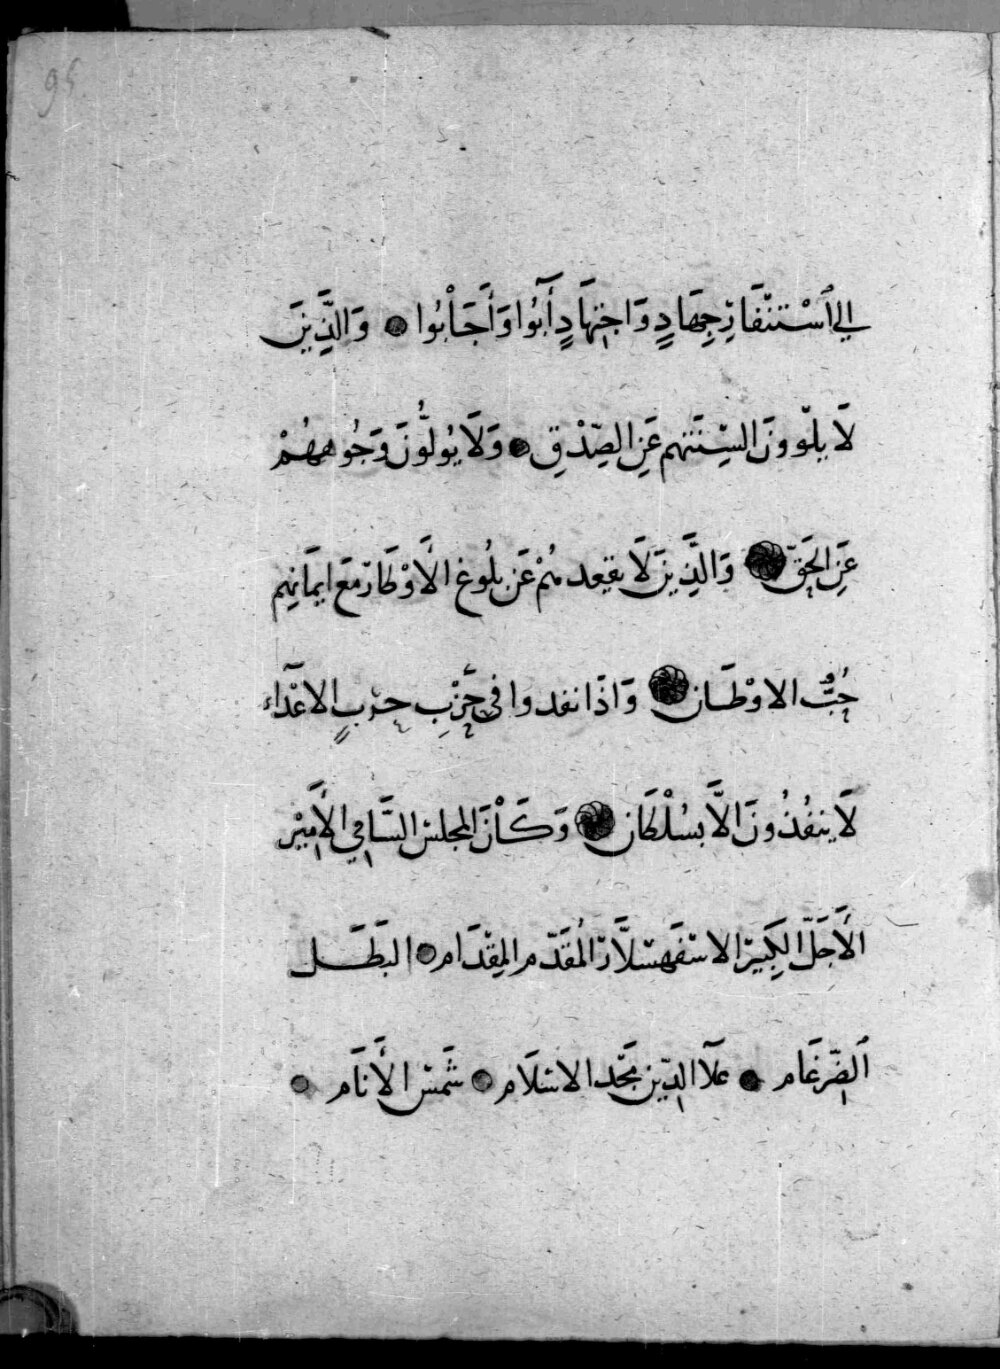 95
إلي ٱسْتنْفَارِ جِهَادٍ وَاجْتِهَادٍ أَبَوُا وَأَجَابُوا ● وَالَّذِينَ
لَا يلوونَ السِنَتهم عَنِ الصِّدْقِ ● وَلَا يُولُّونَ وَجُوههُمْ
عَنِ الحَقّ ۞ وَالَّذِينَ لَا يقعدهُمْ عَن بلُوغ الأَوْطَار مَعَ ايمَانِهم
حُبُّ الاوْطَان ۞ وَاذَا نفدوا في حَرْبِ حِزْبِ الاعْدَاء
لَا ينفُذُونَ الَّا بسُلْطَان ۞ وَكَانَ المجلس السَّامِي الأَمِيْر
الأَجَلّ الكَبِيْر الاسْفَهسْلَّار المُقَدّم المِقْدَام ● البَطَل
ٱلضِّرغَام ● عَلَآ الدِّين مَجْد الاسْلَام ● شَمسْ الأَنَام ●